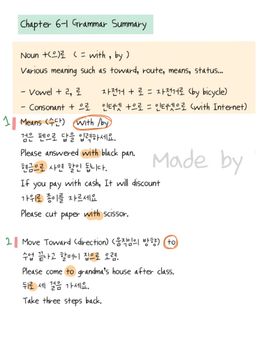 Chapter 6-1 Grammar Summary
Noun +(으)로 ( = with , by )
Various meaning such as toward, route, means, status...
- Vowel + ㄹ, 로 자전거 + 로 = 자전거로 (by bicycle)
- Consonant + 으로 인터넷 +으로 = 인터넷으로 (with Internet)
1 Means (수단) With /by
검은 펜으로 답을 입력하세요.
Please answered with black pan.
현금으로 사면 할인 됩니다.
If you pay with cash, It will discount
가위로 종이를 자르세요
Please cut paper with scissor.
2 Move Toward (direction) (움직임의 방향) to
수업 끝나고 할머니 집으로 오렴.
Please come to grandma's house after class.
뒤로 세 걸음 가세요.
Take three steps back.
Made by